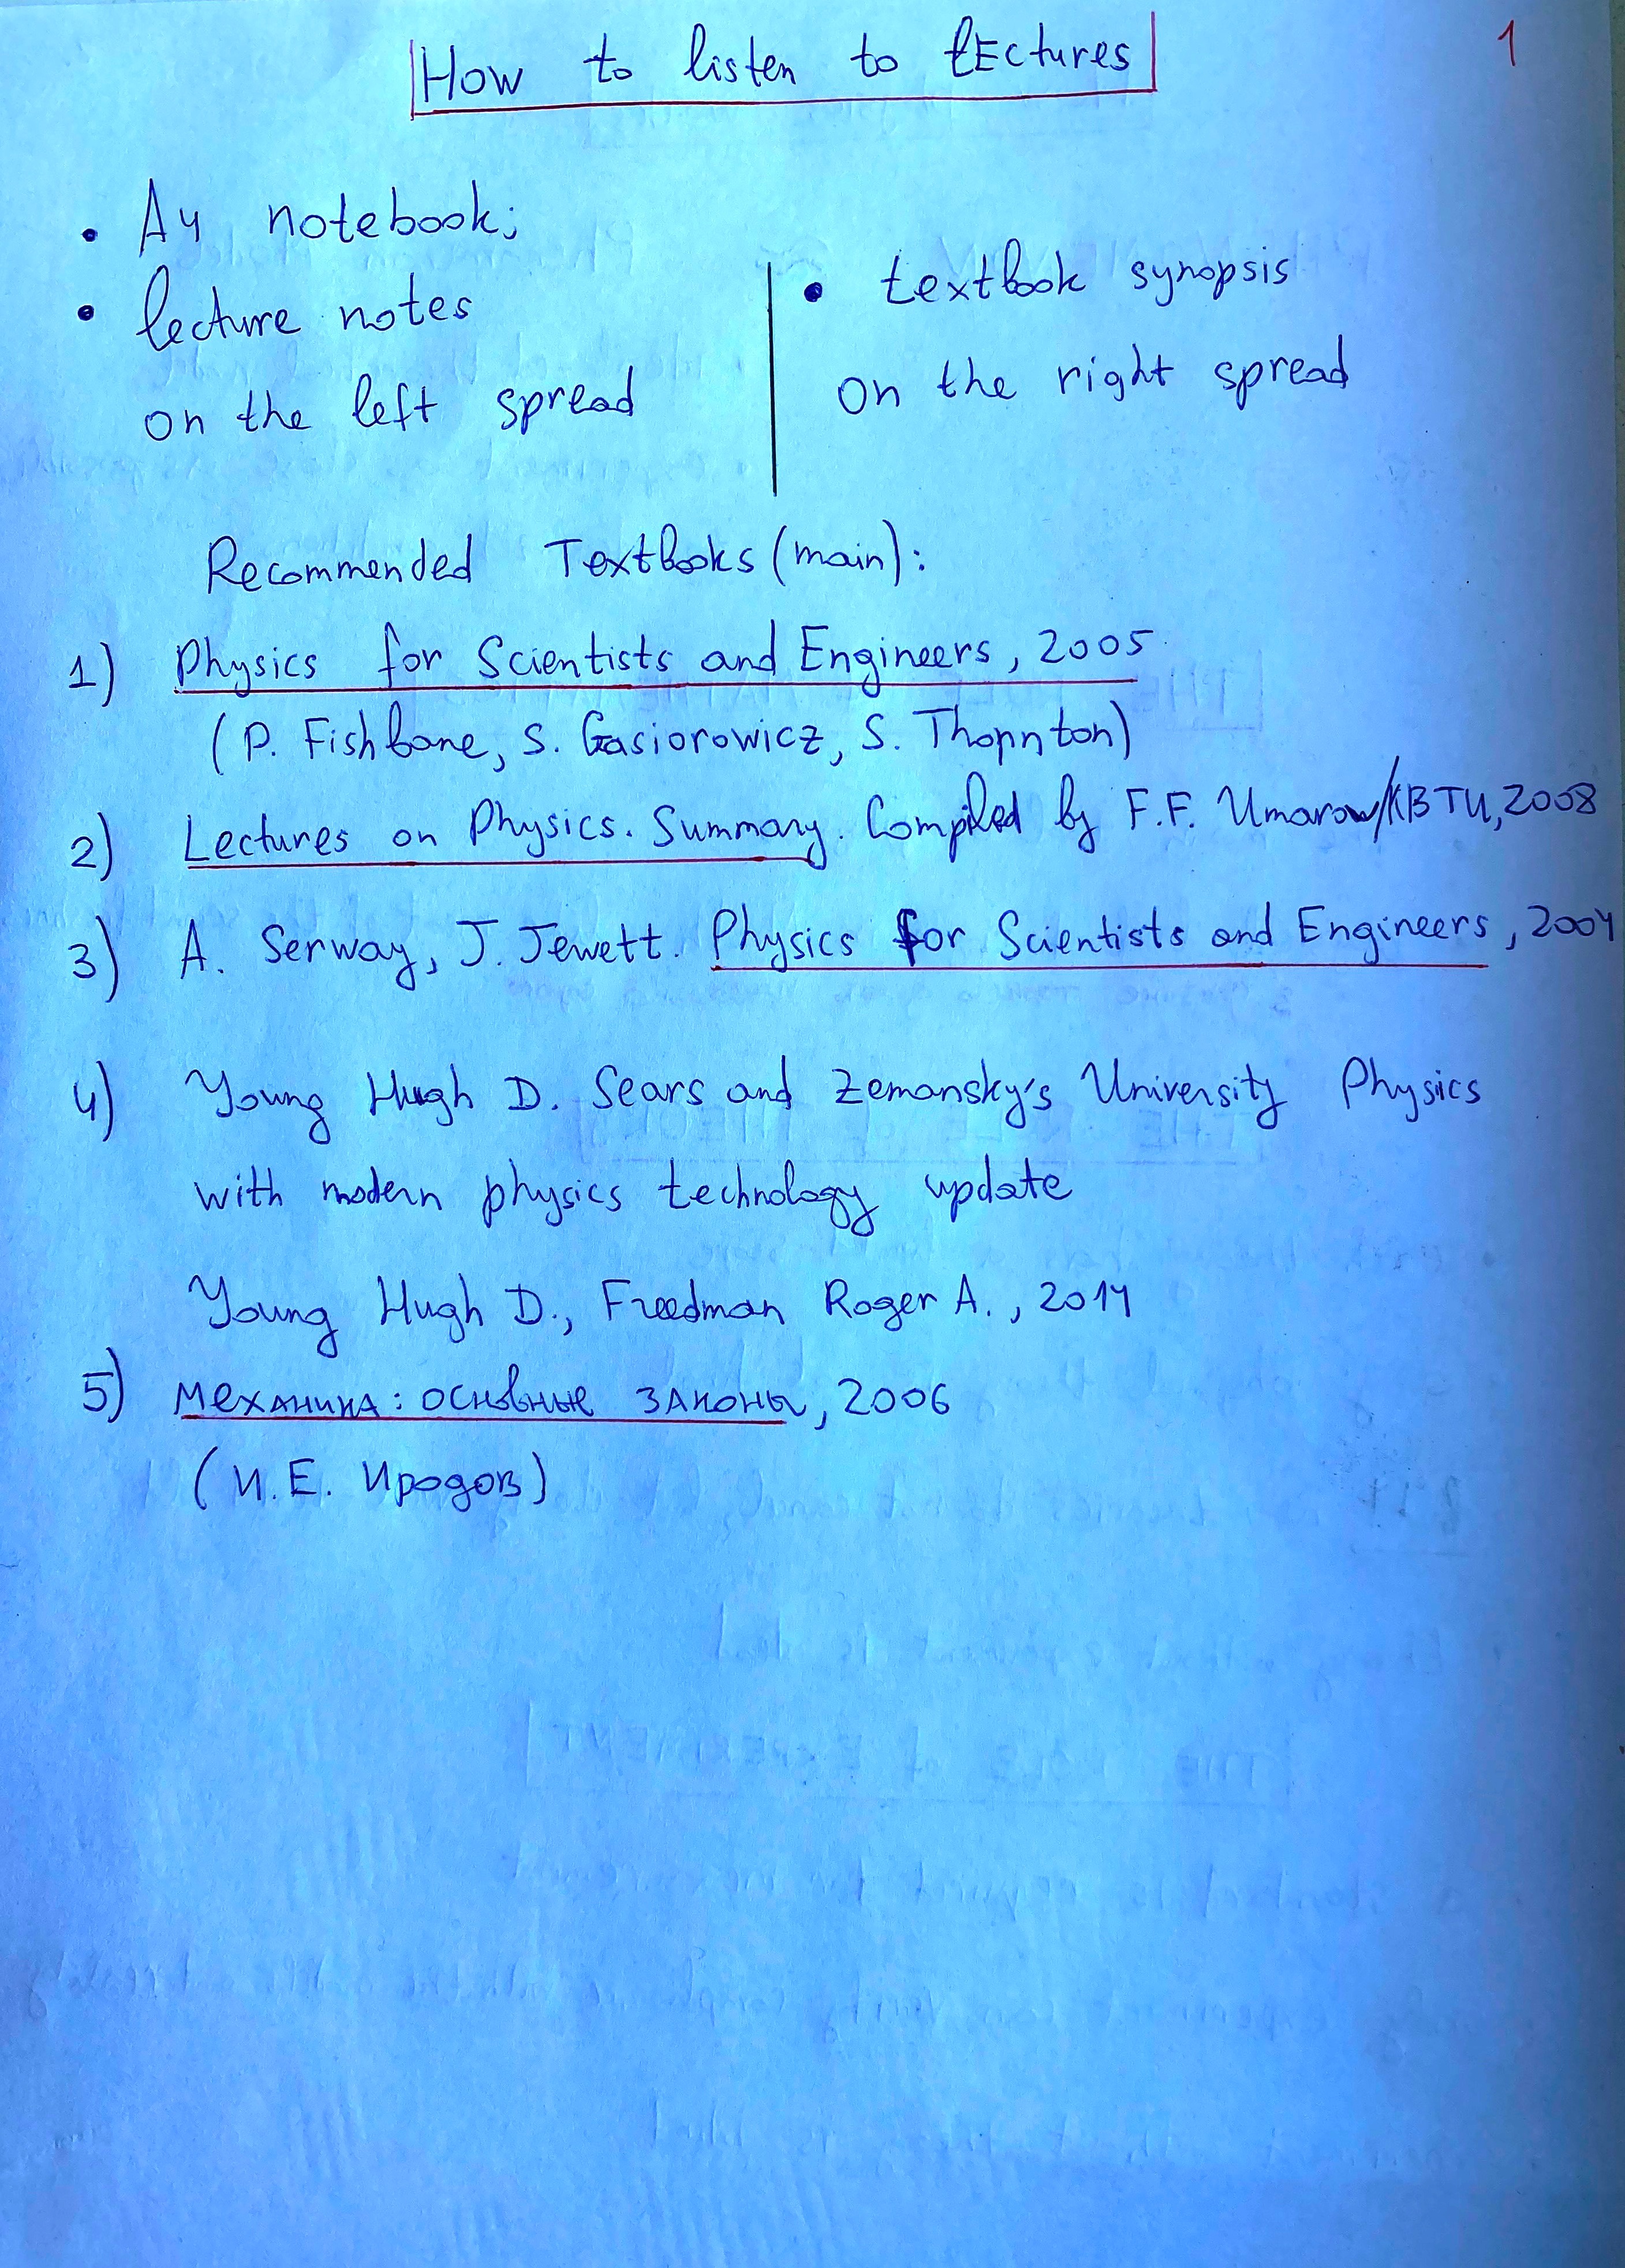 How to listen to lEctures
1
• A4 notebook;
• lecture notes
on the left spread
• textbook synopsis
on the right spread
Recommended Textbooks (main):
1) Physics for Scientists and Engineers, 2005
(P. Fishbane, S. Gasiorowicz, S. Thopnton)
2) Lectures on Physics. Summary. Compiled by F.F. Umarow/KBTU, 2008
3) A. Serway, J. Jewett. Physics for Scientists and Engineers, 2004
4) Young Hugh D. Sears and Zemansky's University Physics
with modern physics technology update
Young Hugh D., Freedman Roger A., 2014
5) Механика: основные законы, 2006
(И.Е. Иродов)